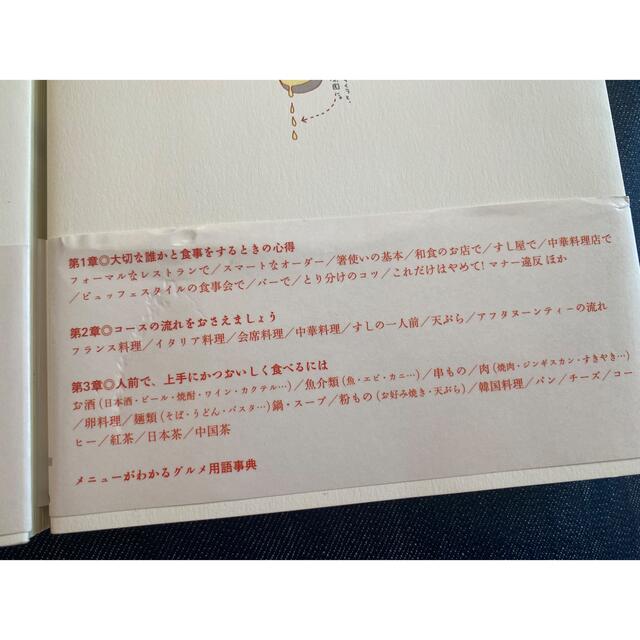 第1章◎大切な誰かと食事をするときの心得
フォーマルなレストランで／スマートなオーダー／箸使いの基本／和食のお店で／すし屋で／中華料理店で
／ビュッフェスタイルの食事会で／バーで／とり分けのコツ／これだけはやめて! マナー違反 ほか
第2章◎コースの流れをおさえましょう
フランス料理／イタリア料理／会席料理／中華料理／すしの一人前／天ぷら／アフタヌーンティーの流れ
第3章◎人前で、上手にかつおいしく食べるには
お酒（日本酒・ビール・焼酎・ワイン・カクテル…）／魚介類（魚・エビ・カニ…）／串もの／肉（焼肉・ジンギスカン・すきやき…）
／卵料理／麺類（そば・うどん・パスタ…）鍋・スープ／粉もの（お好み焼き・天ぷら）／韓国料理／パン／チーズ／コー
ヒー／紅茶／日本茶／中国茶
メニューがわかるグルメ用語事典